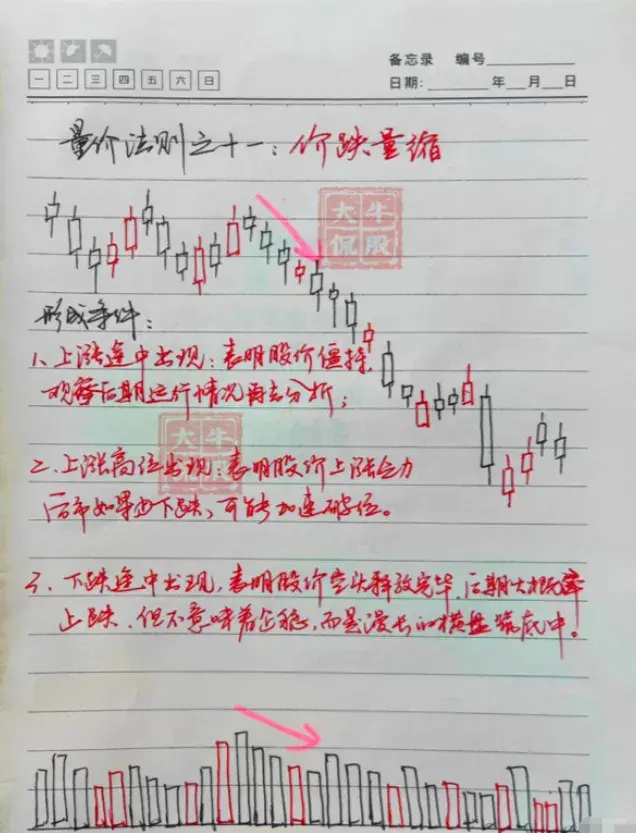 备忘录 编号
一 二 三 四 五 六 日
日期: 年 月 日
量价法则之十一:价跌量缩
大牛
侃股
形成条件:
1、上涨途中出现:表明股价僵持,
观察后期运行情况再去分析;
大牛
侃股
2、上涨高位出现:表明股价上涨乏力
后市如果也下跌,可能加速破位。
3、下跌途中出现,表明股价空头释放完毕,后期大概率
止跌,但不意味着企稳,而是漫长的横盘筑底中。